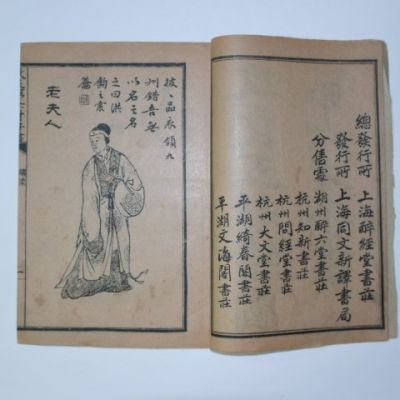 總發行所 上海醉經堂書莊
發行所 上海同文新譯書局
分售處 湖州醉六堂書莊
杭州知新書莊
杭州問經堂書莊
杭州大文堂書莊
平湖綺春閣書莊
平湖文海閣書莊
披、品衣領九
州錯吾無
以名之名
之曰洪
老夫人